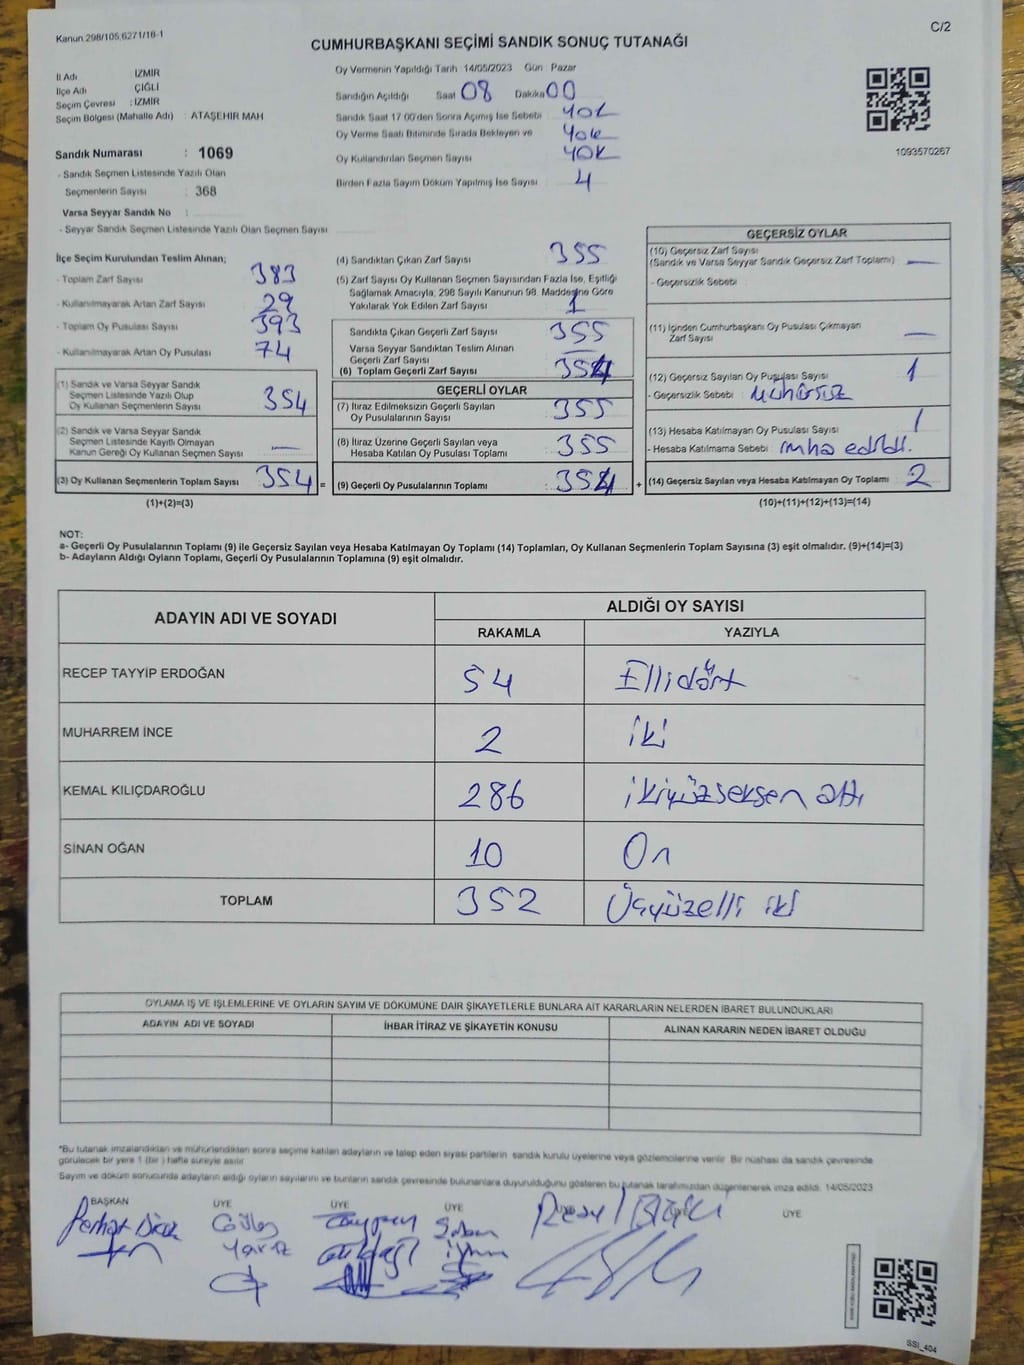 Kanun 298/105,6271/16-1
C/2
CUMHURBAŞKANI SEÇİMİ SANDIK SONUÇ TUTANAĞI
İl Adı İZMİR
İlçe Adı ÇİĞLİ
Seçim Çevresi : İZMİR
Seçim Bölgesi (Mahalle Adı) : ATAŞEHİR MAH
Sandık Numarası : 1069
- Sandık Seçmen Listesinde Yazılı Olan
Seçmenlerin Sayısı : 368
Varsa Seyyar Sandık No :
- Seyyar Sandık Seçmen Listesinde Yazılı Olan Seçmen Sayısı
Oy Vermenin Yapıldığı Tarih 14/05/2023 Gün : Pazar
Sandığın Açıldığı Saat 08 Dakika 00
Sandık Saat 17.00'den Sonra Açılmış İse Sebebi : YOK
Oy Verme Saati Bitiminde Sırada Bekleyen ve YOK
Oy Kullandırılan Seçmen Sayısı YOK
Birden Fazla Sayım Döküm Yapılmış İse Sayısı : 4
1093570267
İlçe Seçim Kurulundan Teslim Alınan;
- Toplam Zarf Sayısı : 383
- Kullanılmayarak Artan Zarf Sayısı : 29
- Toplam Oy Pusulası Sayısı : 393
- Kullanılmayarak Artan Oy Pusulası : 74
(1) Sandık ve Varsa Seyyar Sandık
Seçmen Listesinde Yazılı Olup
Oy Kullanan Seçmenlerin Sayısı : 354
(2) Sandık ve Varsa Seyyar Sandık
Seçmen Listesinde Kayıtlı Olmayan
Kanun Gereği Oy Kullanan Seçmen Sayısı : —
(3) Oy Kullanan Seçmenlerin Toplam Sayısı : 354 =
(1)+(2)=(3)
(4) Sandıktan Çıkan Zarf Sayısı : 355
(5) Zarf Sayısı Oy Kullanan Seçmen Sayısından Fazla İse, Eşitliği
Sağlamak Amacıyla, 298 Sayılı Kanunun 98. Maddesine Göre
Yakılarak Yok Edilen Zarf Sayısı : 1
Sandıkta Çıkan Geçerli Zarf Sayısı : 355
Varsa Seyyar Sandıktan Teslim Alınan
Geçerli Zarf Sayısı : —
(6) Toplam Geçerli Zarf Sayısı : 354
GEÇERLİ OYLAR
(7) İtiraz Edilmeksizin Geçerli Sayılan
Oy Pusulalarının Sayısı : 355
(8) İtiraz Üzerine Geçerli Sayılan veya
Hesaba Katılan Oy Pusulası Toplamı : 355
(9) Geçerli Oy Pusulalarının Toplamı : 354 +
GEÇERSİZ OYLAR
(10) Geçersiz Zarf Sayısı
(Sandık ve Varsa Seyyar Sandık Geçersiz Zarf Toplamı) : —
- Geçersizlik Sebebi :
(11) İçinden Cumhurbaşkanı Oy Pusulası Çıkmayan
Zarf Sayısı : —
(12) Geçersiz Sayılan Oy Pusulası Sayısı : 1
- Geçersizlik Sebebi : mühürsüz
(13) Hesaba Katılmayan Oy Pusulası Sayısı : 1
- Hesaba Katılmama Sebebi : imha edildi.
(14) Geçersiz Sayılan veya Hesaba Katılmayan Oy Toplamı : 2
(10)+(11)+(12)+(13)=(14)
NOT:
a- Geçerli Oy Pusulalarının Toplamı (9) ile Geçersiz Sayılan veya Hesaba Katılmayan Oy Toplamı (14) Toplamları, Oy Kullanan Seçmenlerin Toplam Sayısına (3) eşit olmalıdır. (9)+(14)=(3)
b- Adayların Aldığı Oyların Toplamı, Geçerli Oy Pusulalarının Toplamına (9) eşit olmalıdır.
ADAYIN ADI VE SOYADI
ALDIĞI OY SAYISI
RAKAMLA YAZIYLA
RECEP TAYYİP ERDOĞAN 54 Ellidört
MUHARREM İNCE 2 iki
KEMAL KILIÇDAROĞLU 286 ikiyüzseksen altı
SİNAN OĞAN 10 On
TOPLAM 352 Üçyüzelli iki
OYLAMA İŞ VE İŞLEMLERİNE VE OYLARIN SAYIM VE DÖKÜMÜNE DAİR ŞİKAYETLERLE BUNLARA AİT KARARLARIN NELERDEN İBARET BULUNDUKLARI
ADAYIN ADI VE SOYADI İHBAR İTİRAZ VE ŞİKAYETİN KONUSU ALINAN KARARIN NEDEN İBARET OLDUĞU
"Bu tutanak imzalandıktan ve mühürlendikten sonra seçime katılan adayların ve talep eden siyasi partilerin sandık kurulu üyelerine veya gözlemcilerine verilir. Bir nüshası da sandık çevresinde
görülecek bir yere 1 (bir ) hafta süreyle asılır.
Sayım ve döküm sonucunda adayların aldığı oyların sayılarını ve bunların sandık çevresinde bulunanlara duyurulduğunu gösteren bu tutanak tarafımızdan düzenlenerek imza edildi. 14/05/2023
BAŞKAN ÜYE ÜYE ÜYE ÜYE
SSİ_404